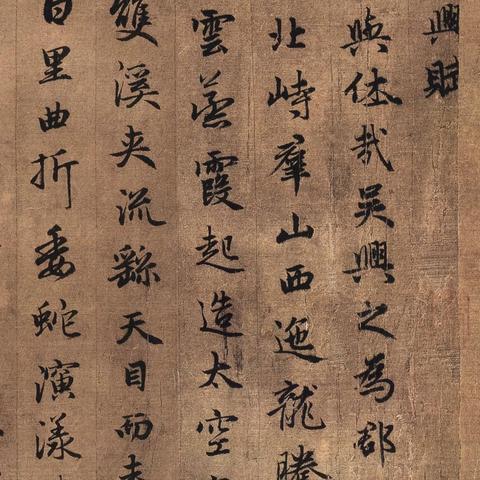 興賦
與休哉吳興之為郡
北峙羣山西迆龍騰
雲蒸霞起造太空
雙溪夾流繇天目而来
百里曲折委蛇演漾